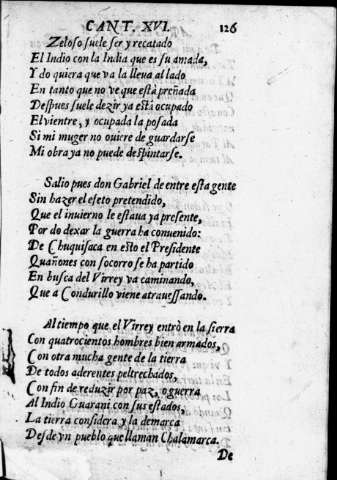 CANT. XVI. 126
Zeloso suele ser y recatado
El Indio con la India que es su amada,
Y do quiera que va la lleua al lado
En tanto que no ve que està preñada
Despues suele dezir ya està ocupado
El vientre, y ocupada la posada
Si mi muger no ouiere de guardarse
Mi obra ya no puede despintarse.
Salio pues don Gabriel de entre esta gente
Sin hazer el efeto pretendido,
Que el inuierno le estaua ya presente,
Por do dexar la guerra ha conuenido:
De Chuquisaca en esto el Presidente
Quañones con socorro se ha partido
En busca del Virrey va caminando,
Que a Condurillo viene atrauessando.
Al tiempo que el Virrey entrò en la sierra
Con quatrocientos hombres bien armados,
Con otra mucha gente de la tierra
De todos aderentes peltrechados,
Con fin de reduzir por paz, o guerra
Al Indio Guarani con sus estados,
La tierra considera y la demarca
Desde vn pueblo que llaman Chalamarca.
De